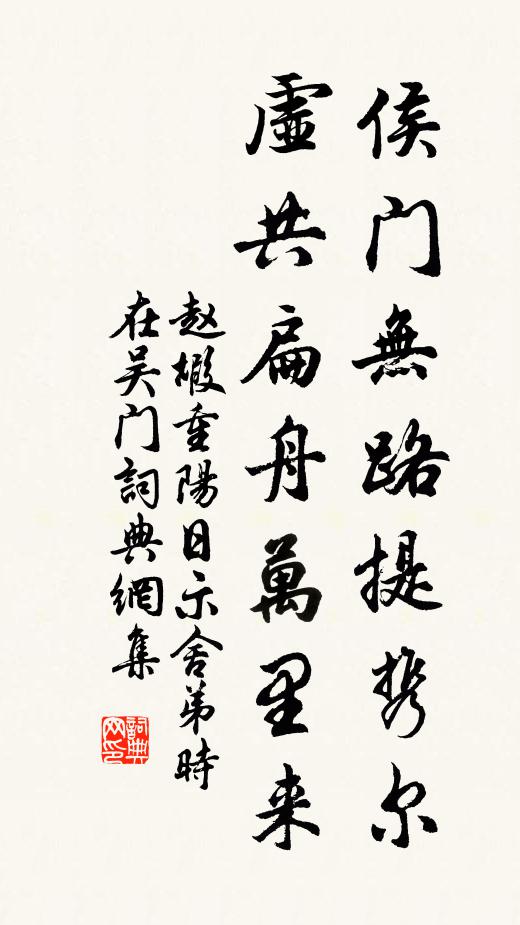 侯门無路提携尔
虚共扁舟萬里来
赵椵重陽日示舍弟時
在吴门詞典網集
詞典
网印